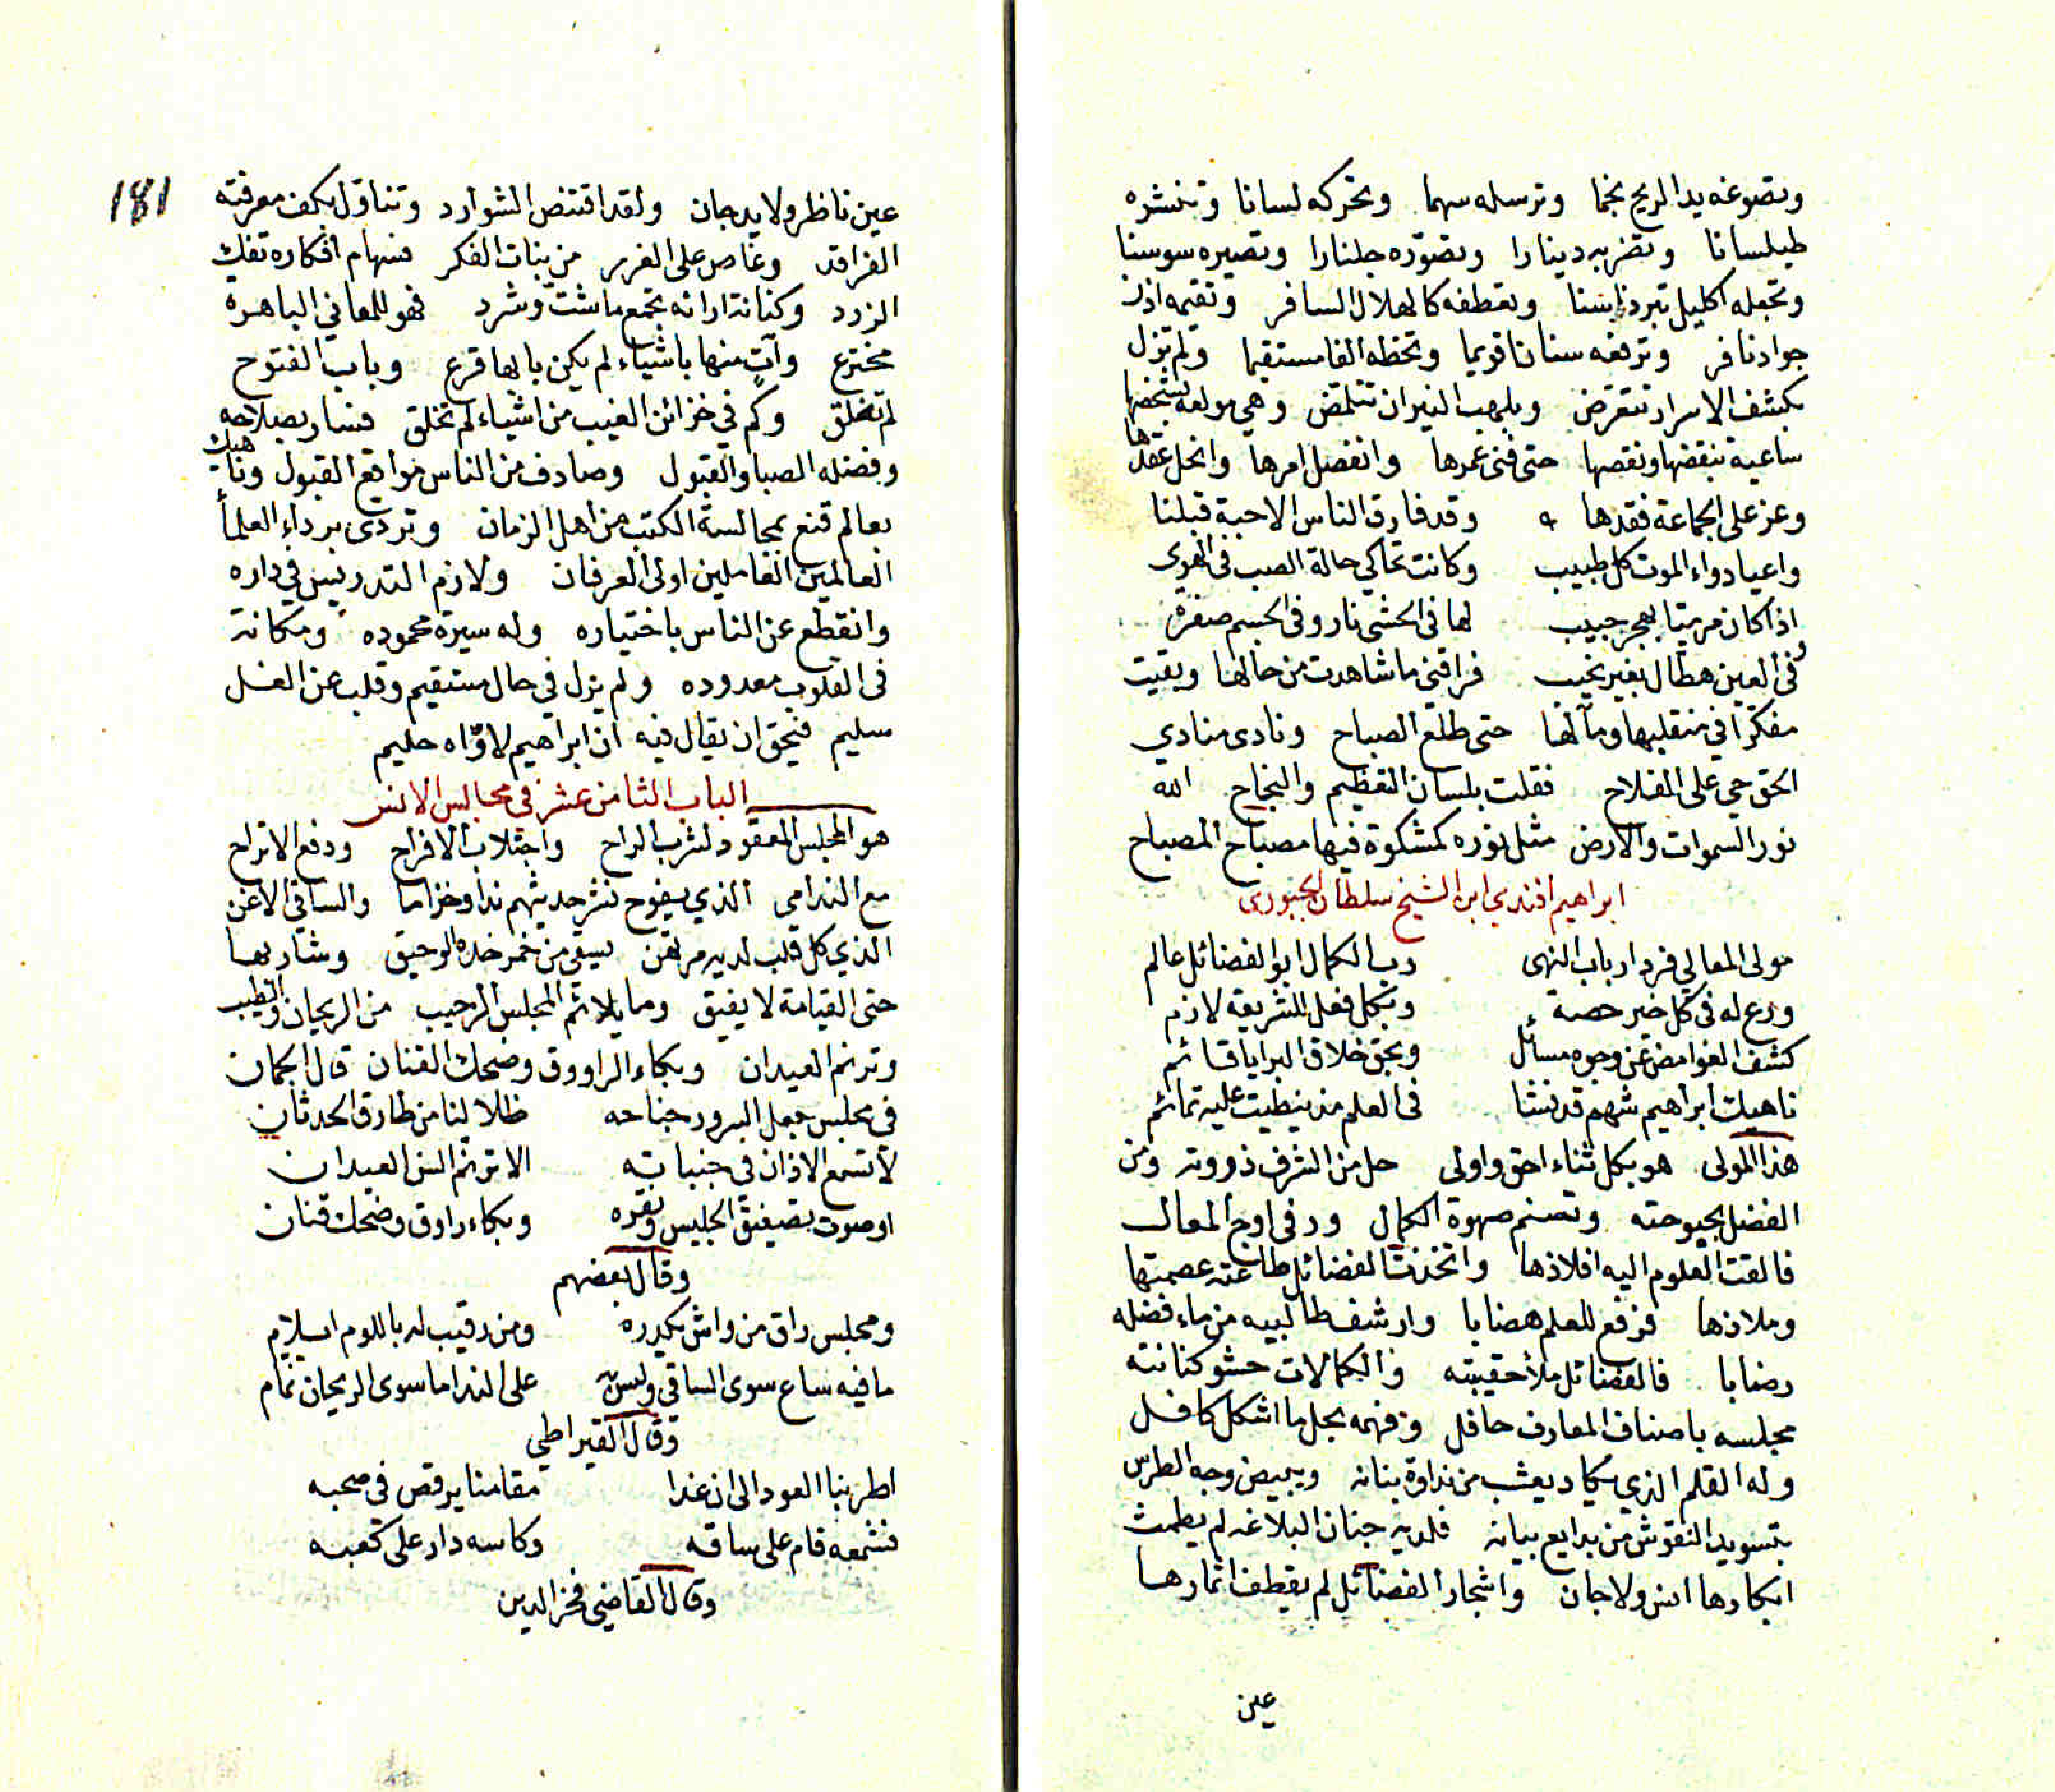 وتصوغه يد الريح نجما وترسله سهما وتحركه لسانا وتنشره
طيلسانا وتضربه دينارا وتصوره جلنارا وتصيره سوسنا
وتجعله اكليل تبر وتعطفه كالهلال السافر وتقيمه اذن
جواد نافر وترفعه سنانا قويما وتخطه الفا مستقيما ولم تزل
بكشف الاسرار تتعرض وبلهب النيران تتلمض وهي مولعة بشخصها
ساعية بنقضها ونقصها حتى فنى عمرها وانفصل امرها وانحل عقدها
وعز على الجماعة فقدها وقد فارق الناس الاحبة قبلنا
واعيا دواء الموت كل طبيب وكانت تحاكي حالة الصب في الهوى
اذا كان مرميّا بهجر حبيب لها في الحشى نار وفي الجسم صفرة
وفي العين هطال بغير نحيب فراقني ما شاهدت من حالها وبقيت
مفكرا في منقلبها ومآلها حتى طلع الصباح ونادى منادي
الحق حي على الفلاح فقلت بلسان التعظيم والنجاح الله
نور السموات والارض مثل نوره كمشكوة فيها مصباح المصباح
ابراهيم افندي ابن الشيخ سلطان الجبوري
مولى المعالي فرد ارباب النهى رب الكمال ابو الفضائل عالم
ورع له في كل خير حصة وبكل فعل للشريعة لازم
كشف الغوامض عن وجوه مسائل وبحق خلاق البرايا قائم
ناهيك ابراهيم شهم قد نشا في العلم مذ نيطت عليه تمائم
هذا المولى هو بكل ثناء احق واولى حل من الشرف ذروته ومن
الفضل بحبوحته وتسنم صهوة الكمال ورقى اوج المعالى
فالقت العلوم اليه افلاذها واتخذت الفضائل طاعته عصمتها
وملاذها فرفع للعلم هضابا وارشف طالبيه من ماء فضله
رضابا فالفضائل ملأ حقيبته والكمالات حشو كنانته
مجلسه باصناف المعارف حافل وفهمه بحل ما اشكل كافل
وله القلم الذي يكاد يعشب من نداوة بنانه ويبيض وجه الطرس
بتسويد النقوش من بدايع بيانه فلديه جنان البلاغه لم يطمث
ابكارها انس ولا جان واشجار الفضائل لم يقطف اثمارها
عين
181
عين ناظر ولا يد جان ولقد اقتنص الشوارد وتناول بكف معرفته
الفراقد وغاص على الغرر من بنات الفكر فسهام افكاره تفك
الزرد وكنانة ارائه تجمع ما شتّ وشرد فهو للمعاني الباهرة
مخترع وآتٍ منها باشياء لم يكن بابها قرع وباب الفتوح
لم تغلق وكم في خزائن الغيب من اشياء لم تخلق فسار بصلاحه
وفضله الصبا والقبول وصادف من الناس مواقع القبول وناهيك
بعالم قنع بمجالسة الكتب من اهل الزمان وتردى برداء العلمأ
العالمين العاملين اولى العرفان ولازم التدريس في داره
وانقطع عن الناس باختياره وله سيرة محموده ومكانة
في القلوب معدوده ولم يزل في حال مستقيم وقلب عن الغل
سليم فيحق ان يقال فيه ان ابراهيم لاوّاه حليم
الباب الثامن عشر في مجالس الانس
هو المجلس المعقود لشرب الراح واجتلاب الافراح ودفع الاتراح
مع الندامى الذي يفوح نشر حديثهم ندا وخزاما والساقي الاغن
الذي كل قلب لديه مرتهن يسقي من خمر خده الرحيق وشاربها
حتى القيامة لا يفيق وما يلائم المجلس الرحيب من الريحان والطيب
وترنم العيدان وبكاء الراووق وضحك القنان قال الجمان
في مجلس جعل السرور جناحه ظلا لنا من طارق الحدثان
لا تسمع الاذان في جنباته الا ترنم السن العيدان
او صوت تصفيق الجليس ونقره وبكاء راوق وضحك قنان
وقال بعضهم
ومجلس راق من واش يكدره ومن رقيب له باللوم ايلام
ما فيه ساع سوى الساقي وليس به على الندما سوى الريحان نمام
وقال القيراطي
اطربنا العود الى ان غدا مقامنا يرقص في صحبه
فشمعه قام على ساقه وكاسه دار على كعبه
وقال القاضي فخر الدين